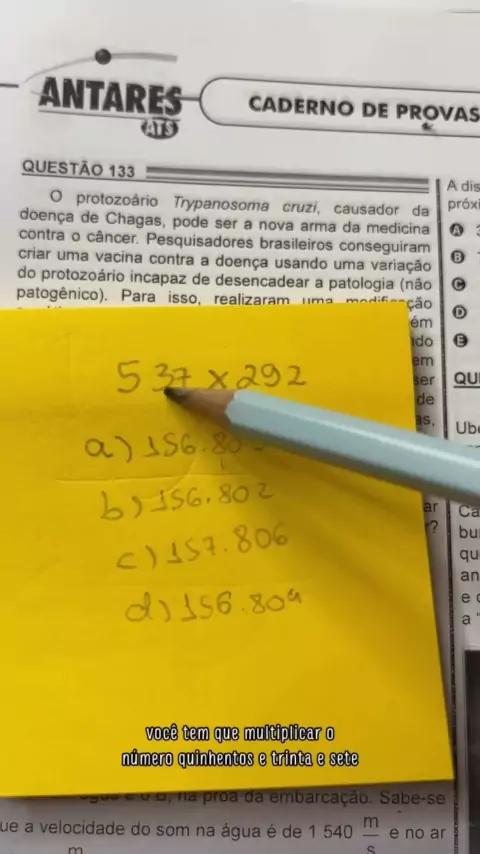 ANTARES
ATS
CADERNO DE PROVAS
QUESTÃO 133
O protozoário Trypanosoma cruzi, causador da
doença de Chagas, pode ser a nova arma da medicina
contra o câncer. Pesquisadores brasileiros conseguiram
criar uma vacina contra a doença usando uma variação
do protozoário incapaz de desencadear a patologia (não
patogênico). Para isso, realizaram uma modificação
ém
ndo
em
ser
de
as,
ar
r?
A dis
próxi
A
B
C
D
E
QUE
Ube
Ca
bu
qu
an
e c
a "
537 x 292
a) 156.80
b) 156.802
c) 157.806
d) 156.804
você tem que multiplicar o
número quinhentos e trinta e sete
na proa da embarcação. Sabe-se
ue a velocidade do som na água é de 1 540 m/s e no ar
m